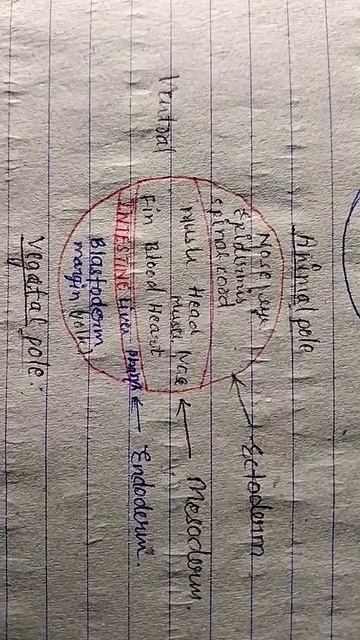 Animal pole
Nose eye
Epidermis
Spinal cord
Ectoderm
Ventral
Muscle Head
Muscle
Mesoderm.
Fin Blood Heart
INTESTINE Liver
Endoderm.
Blastoderm
margin (Yolk)
Vegetal pole.